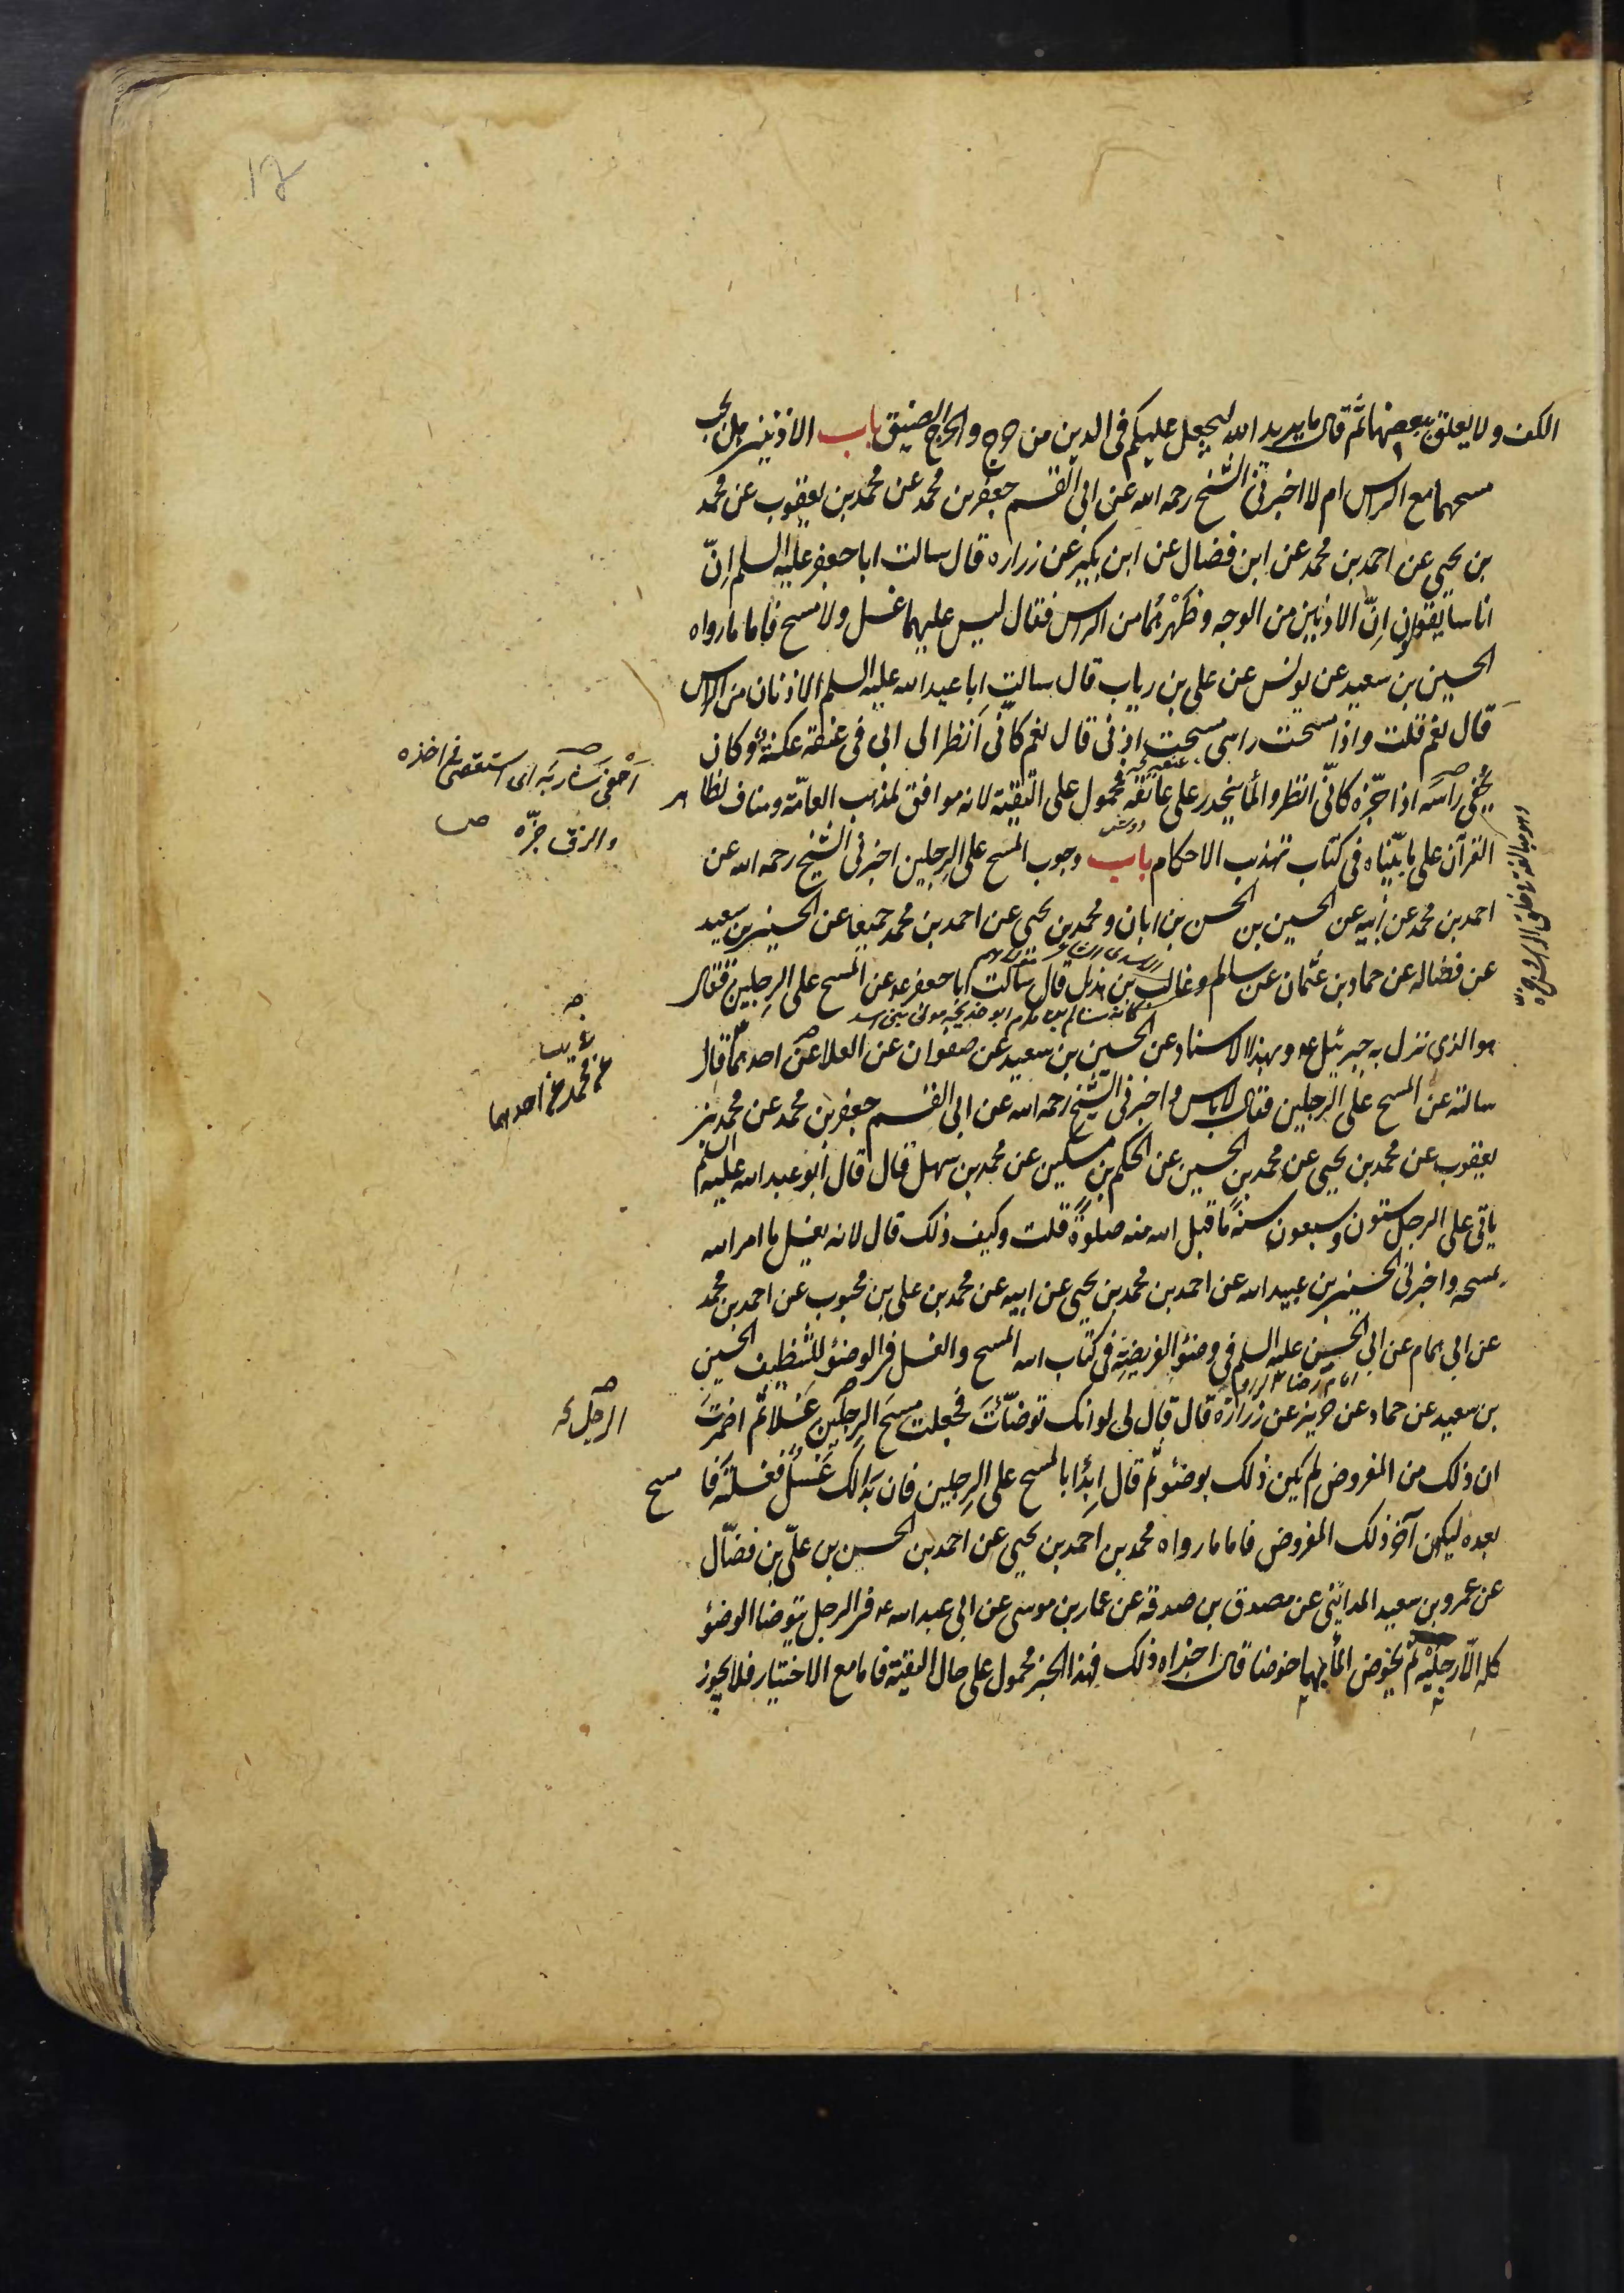 الكف ولا يعلق ببعضها ثم قال ما يريد الله ليجعل عليكم في الدين من حرج والحرج الضيق باب الاذنين هل يجب
مسحهما مع الراس ام لا اخبرني الشيخ رحمه الله عن ابي القسم جعفر بن محمد عن محمد بن يعقوب عن محمد
بن يحيى عن احمد بن محمد عن ابن فضال عن ابن بكير عن زراره قال سالت ابا جعفر عليه السلم انّ
اناسا يقولون انّ الاذنين من الوجه وظَهْرهُما من الراس فقال ليس عليهما غسل ولا مسح فاما ما رواه
الحسين بن سعيد عن يونس عن علي بن رياب قال سالت ابا عبد الله عليه السلم الاذنان من الراس
قال نعم قلت واذا مسحت راسي مسحت اذني قال نعم كانّي اَنظر الى ابي في عنقه عكنة وكان
يُحفي راسَه اذا جزّه كانّي انظر والماء ينحدر على عنقه محمول على التقية لانه موافق لمذهب العامّة ومناف لظاهر
القرآن على ما بيّناه في كتاب تهذيب الاحكام باب وجوب المسح على الرجلين اخبرني الشيخ رحمه الله عن
احمد بن محمد عن ابيه عن الحسين بن الحسن بن ابان ومحمد بن يحيى عن احمد بن محمد جميعا عن الحسين بن سعيد
عن فضاله عن حماد بن عثمان عن سالم وغالب بن هذيل قال سالت ابا جعفر عه عن المسح على الرجلين فقال
هو الذي نزل به جبرئيل عه وبهذا الاسناد عن الحسين بن سعيد عن صفوان عن العلا عن احدهما قال
سالته عن المسح على الرجلين فقال لا باس واخبرني الشيخ رحمه الله عن ابي القسم جعفر بن محمد عن محمد بن
يعقوب عن محمد بن يحيى عن محمد بن الحسين عن الحكم بن مسكين عن محمد بن سهل قال قال ابو عبد الله عليه السلم
ياتي على الرجل ستون وسبعون سنةً ما قبل الله منه صلوةً قلت وكيف ذلك قال لانه يغسل ما امر الله
بمسحه واخبرني الحسين بن عبيد الله عن احمد بن محمد بن يحيى عن ابيه عن محمد بن علي بن محبوب عن احمد بن محمد
عن ابي همام عن ابي الحسين عليه السلم في وضوء الفريضة في كتاب الله المسح والغسل في الوضوء للتنظيف الحسين
بن سعيد عن حماد عن حريز عن زرارة قال قال لي لو انك توضّأتَ فجعلت مسحَ الرجلين غَسلا ثم اضمرت
ان ذلك من المفروض لم يكن ذلك بوضوء ثم قال اِبدأ بالمسح على الرجلين فان بدَا لك غَسلٌ فغسلتَه فا مسح
بعده ليكون آخر ذلك المفروض فاما ما رواه محمد بن احمد بن يحيى عن احمد بن الحسن بن عليّ بن فضّال
عن عمرو بن سعيد المدائني عن مصدق بن صدقة عن عمار بن موسى عن ابي عبد الله عه في الرجل يتوضا الوضوء
كله الّا رجليه ثم يخوض الماء بهما خوضا قال اجزاه ذلك فهذا الخبر محمول على حال التقية فاما مع الاختيار فلا يجوز
اَحْفى شارِبَه اى استقصى في اخذه
والزق جزّه ص
عن محمد عن احدهما
الرجل